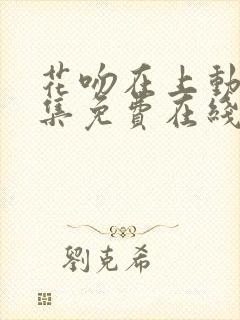 花吻在上動
集免費在綫
劉克希